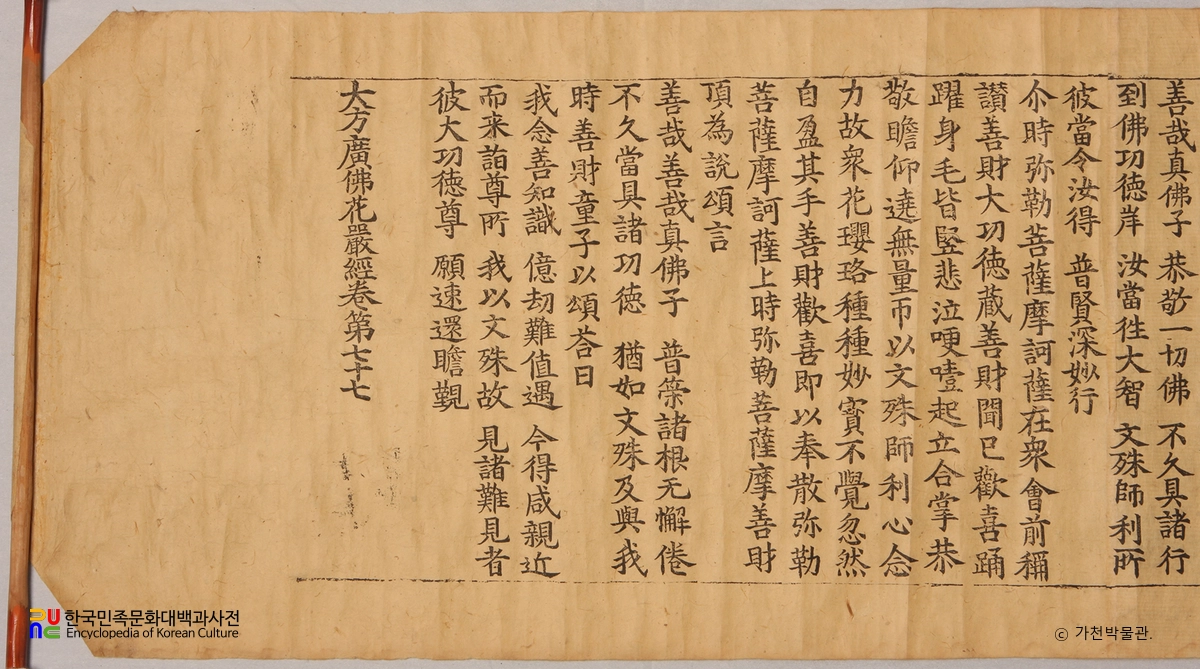 善哉真佛子 恭敬一切佛 不久具諸行
到佛功徳岸 汝當徃大智 文殊師利所
彼當令汝得 普賢深妙行
尒時弥勒菩薩摩訶薩在衆會前稱
讃善財大功徳藏善財聞已歡喜踊
躍身毛皆竪悲泣哽噎起立合掌恭
敬瞻仰遶無量帀以文殊師利心念
力故衆花瓔珞種種妙寳不覺忽然
自盈其手善財歡喜即以奉散弥勒
菩薩摩訶薩上時弥勒菩薩摩善財
頂為説頌言
善哉善哉真佛子 普筞諸根无懈倦
不久當具諸功徳 猶如文殊及與我
時善財童子以頌荅曰
我念善知識 億劫難值遇 今得咸親近
而来詣尊所 我以文殊故 見諸難見者
彼大功徳尊 願速還瞻覲
大方廣佛花嚴經卷第七十七
한국민족문화대백과사전
Encyclopedia of Korean Culture
ⓒ 가천박물관.